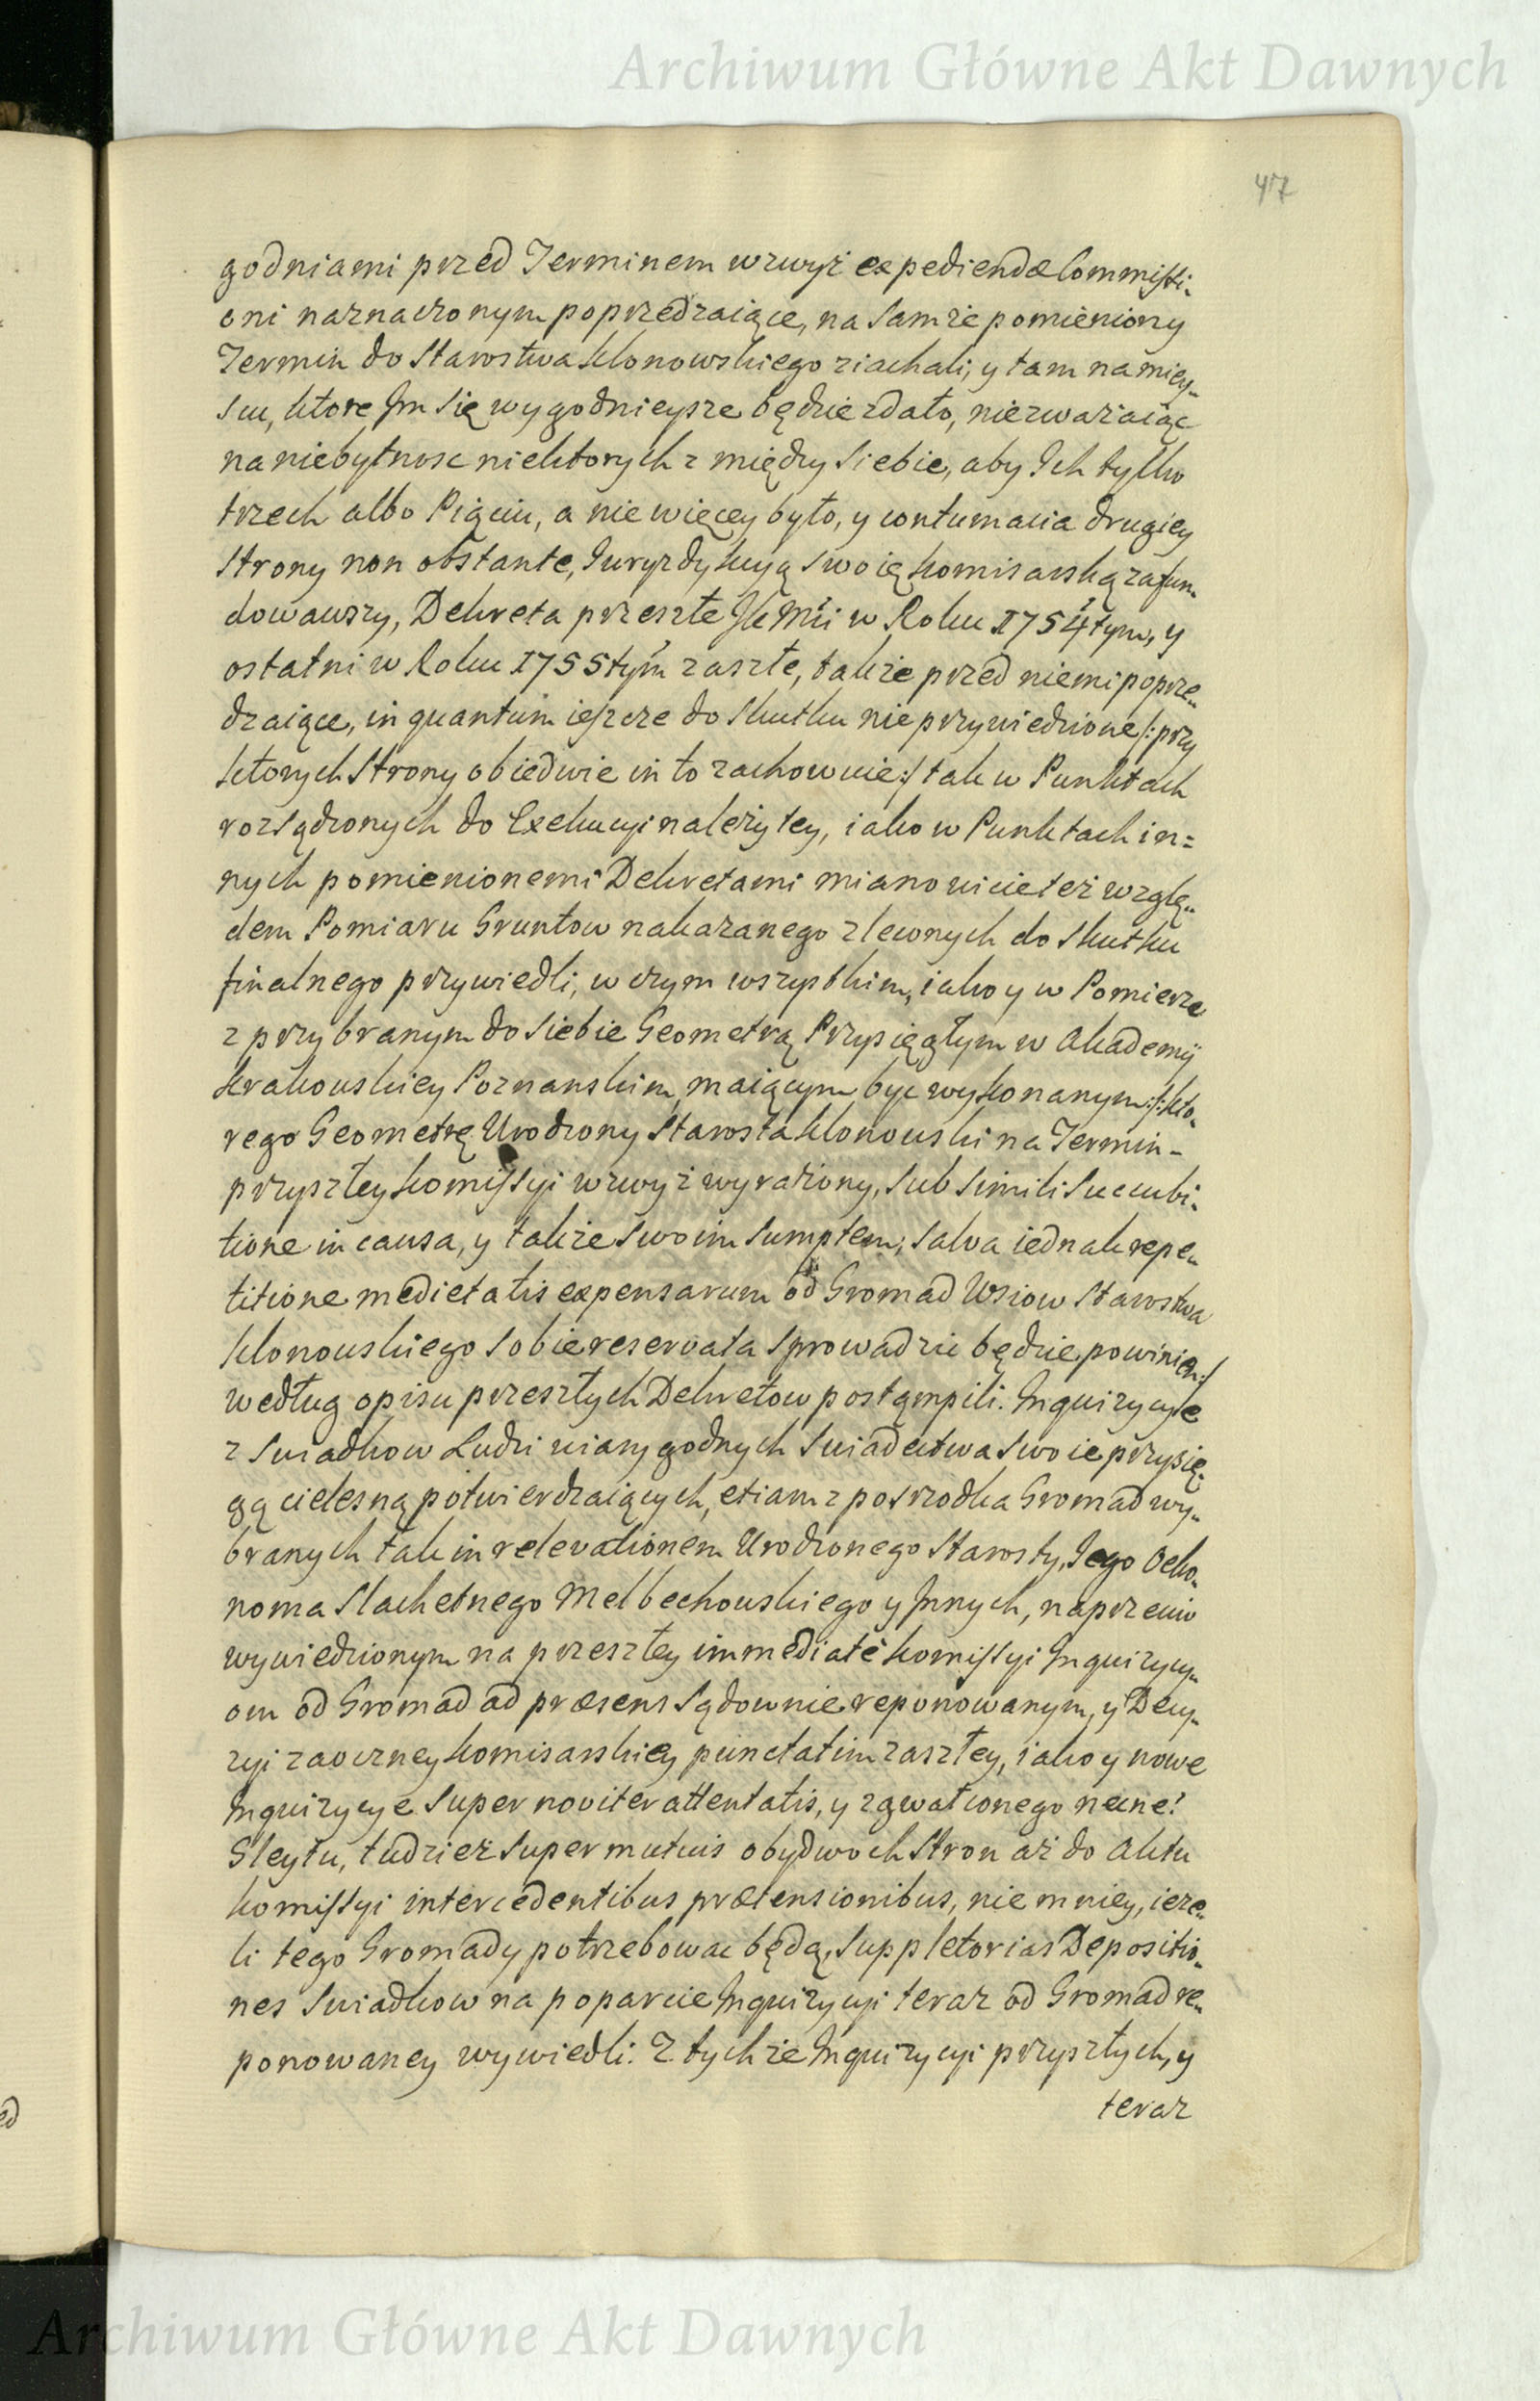 Archiwum Główne Akt Dawnych
47
godniami przed Terminem wzwyż expediendæ Commissi„
oni naznaczonym poprzedzaiące, na samże pomieniony
Termin do Starostwa Klonowskiego ziachali, y tam na miey„
scu, ktore Im się wygodnieysze będzie zdało, niezważaiąc
na niebytnosc niektorych z między siebie, aby Ich tylko
trzech albo Pięciu, a nie więcey było, y contumacia drugiey
strony non obstante, Iuryzdykcyą swoię komisarską zafun„
dowawszy, Dekreta przeszłe w Roku 1754tym, y
ostatni w Roku 1755tym zaszłe, także przed niemi poprze„
dzaiące, in quantum ieszcze do skutku nie przywiedzione /: przy
ktorych Strony obiedwie in to zachowuie :/ tak w Punktach
rozsądzonych do Exekucyi należytey, iako w Punktach in=
nych pomienionemi Dekretami mianowicie też wzglę„
dem Pomiaru Gruntow nakazanego zleconych do skutku
finalnego przywiedli, w czym wszystkim, iako y w Pomierze
z przybranym do siebie Geometrą Przysięgłym w Akademij
Krakowskiey Poznanskim maiącym byc wykonanym /: kto„
rego Geometrę Urodzony Starosta Klonowski na Termin
przyszłey Komissyi wzwyż wyrażony, sub simili succubi„
tione in causa, y także swoim sumptem, salva iednak repe„
titione medietatis expensarum od Gromad Wsiow Starostwa
Klonowskiego sobie reservata sprowadzic będzie powinien :/
według opisu przeszłych Dekretow postąmpili. Inquizycye
z Swiadkow Ludzi wiary godnych swiadectwa swoie przysię„
gą cielesną potwierdzaiących, etiam z posrzodka Gromad wy„
branych tak in relevationem Urodzonego Starosty, Iego Oeko„
noma Slachetnego Melbechowskiego y Innych, naprzeciw
wywiedzionym na przeszłey immediatè Komissyi Inquizycy„
om od Gromad ad præsens sądownie reponowanym, y Decy„
zyi zaoczney Komisarskiey punctatim zaszłey, iako y nowe
Inquizycye super noviter attentatis, y zgwałconego necne?
Gleytu, tudzież super mutuis obydwoch Stron aż do Aktu
Komissyi intercedentibus prætensionibus, nie mniey, ieże„
li tego Gromady potrzebowac będą, suppletorias Depositio„
nes swiadkow na poparcie Inquizycyi teraz od Gromad re„
ponowaney wywiedli. Z tychże Inquizycyi przyszłych, y
teraz
Archiwum Główne Akt Dawnych